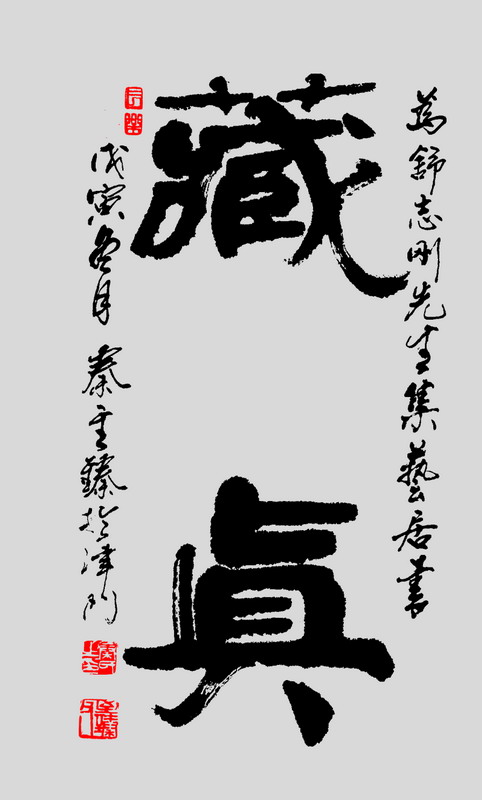 為舒志刚先生集藝居書
藏眞
戊寅冬月 秦至臻於津門